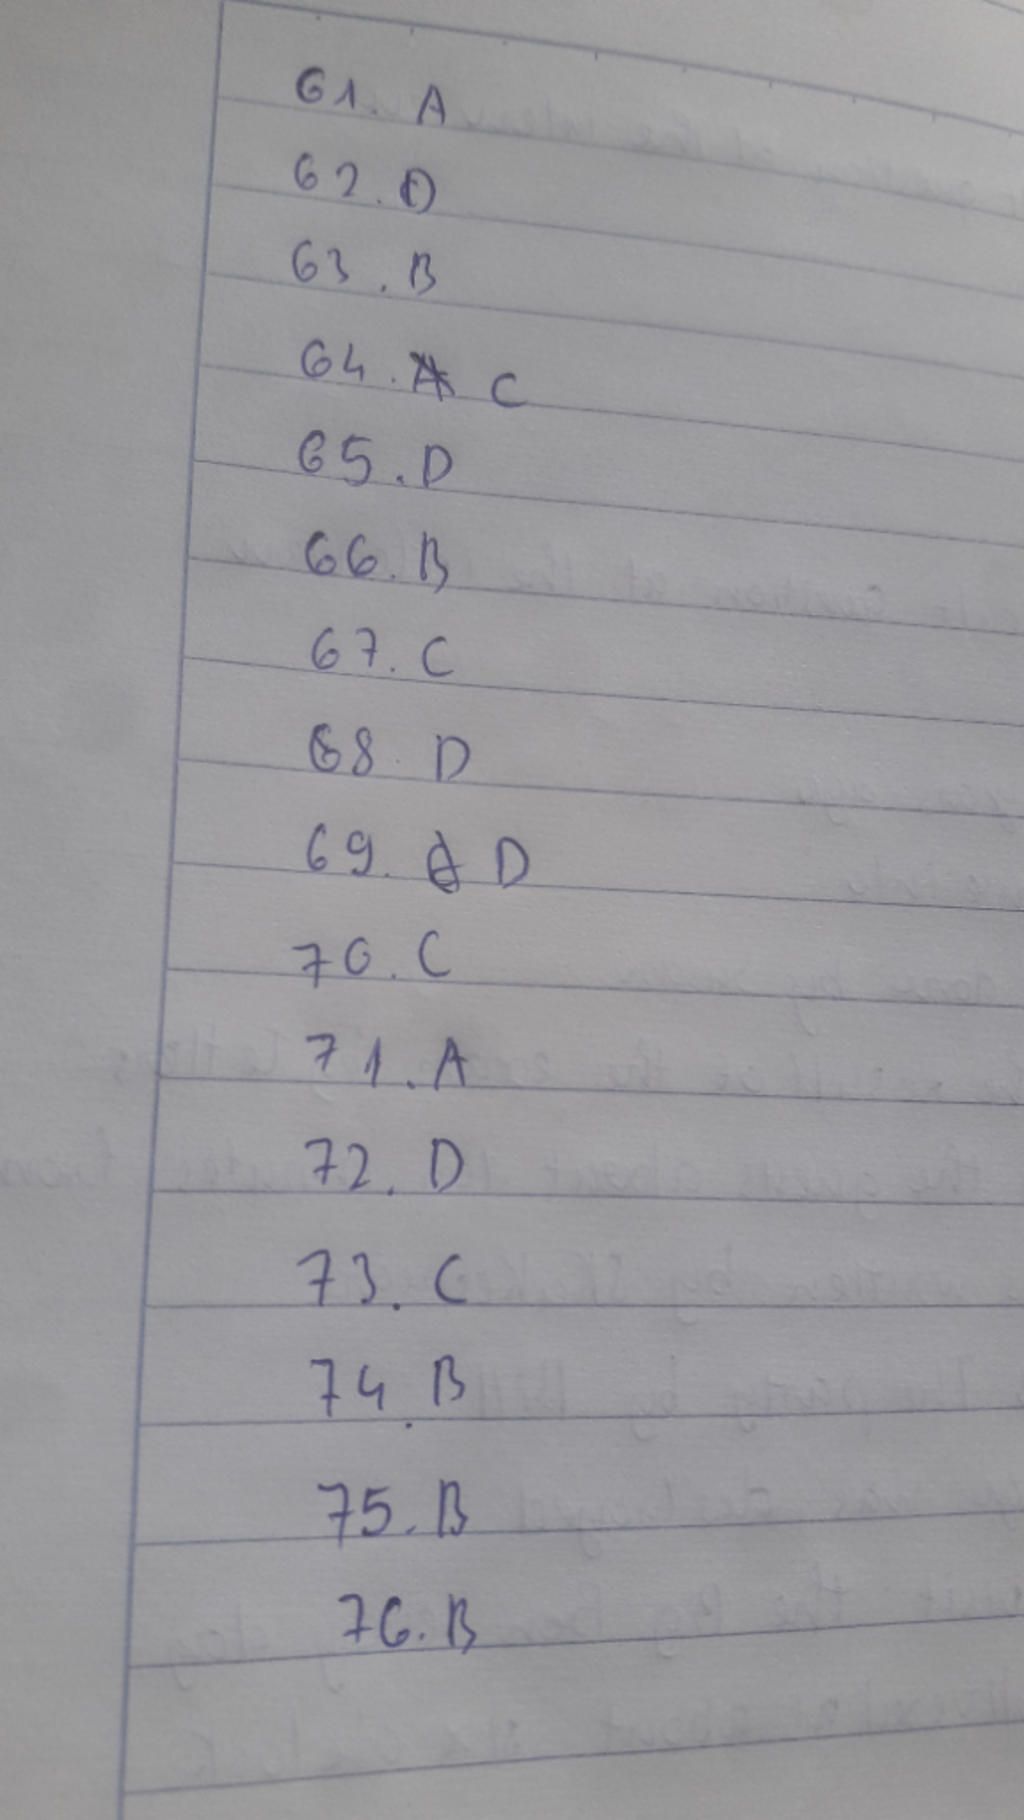 61. A
62. D
63. B
64. C
65. D
66. B
67. C
68. D
69. D
70. C
71. A
72. D
73. C
74. B
75. B
76. B